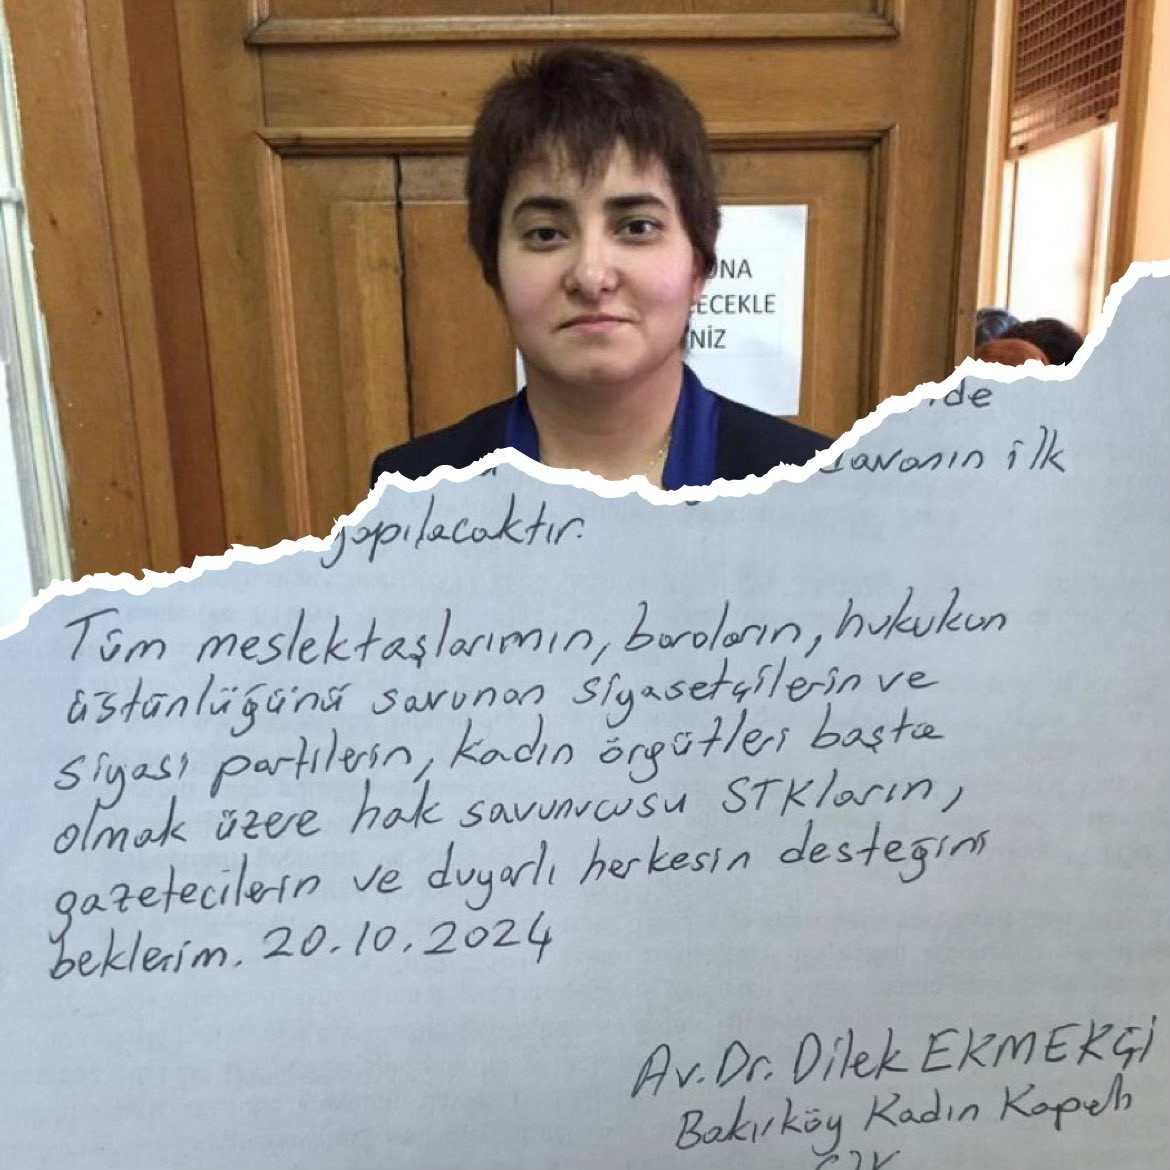 UNA
ECEKLE
NİZ
de
davanın ilk
yapılacaktır.
Tüm meslektaşlarımın, baroların, hukukun
üstünlüğünü savunan siyasetçilerin ve
siyasi partilerin, kadın örgütleri başta
olmak üzere hak savunucusu STKların,
gazetecilerin ve duyarlı herkesin desteğini
beklerim. 20.10.2024
Av. Dr. Dilek EKMEKÇİ
Bakırköy Kadın Kapalı